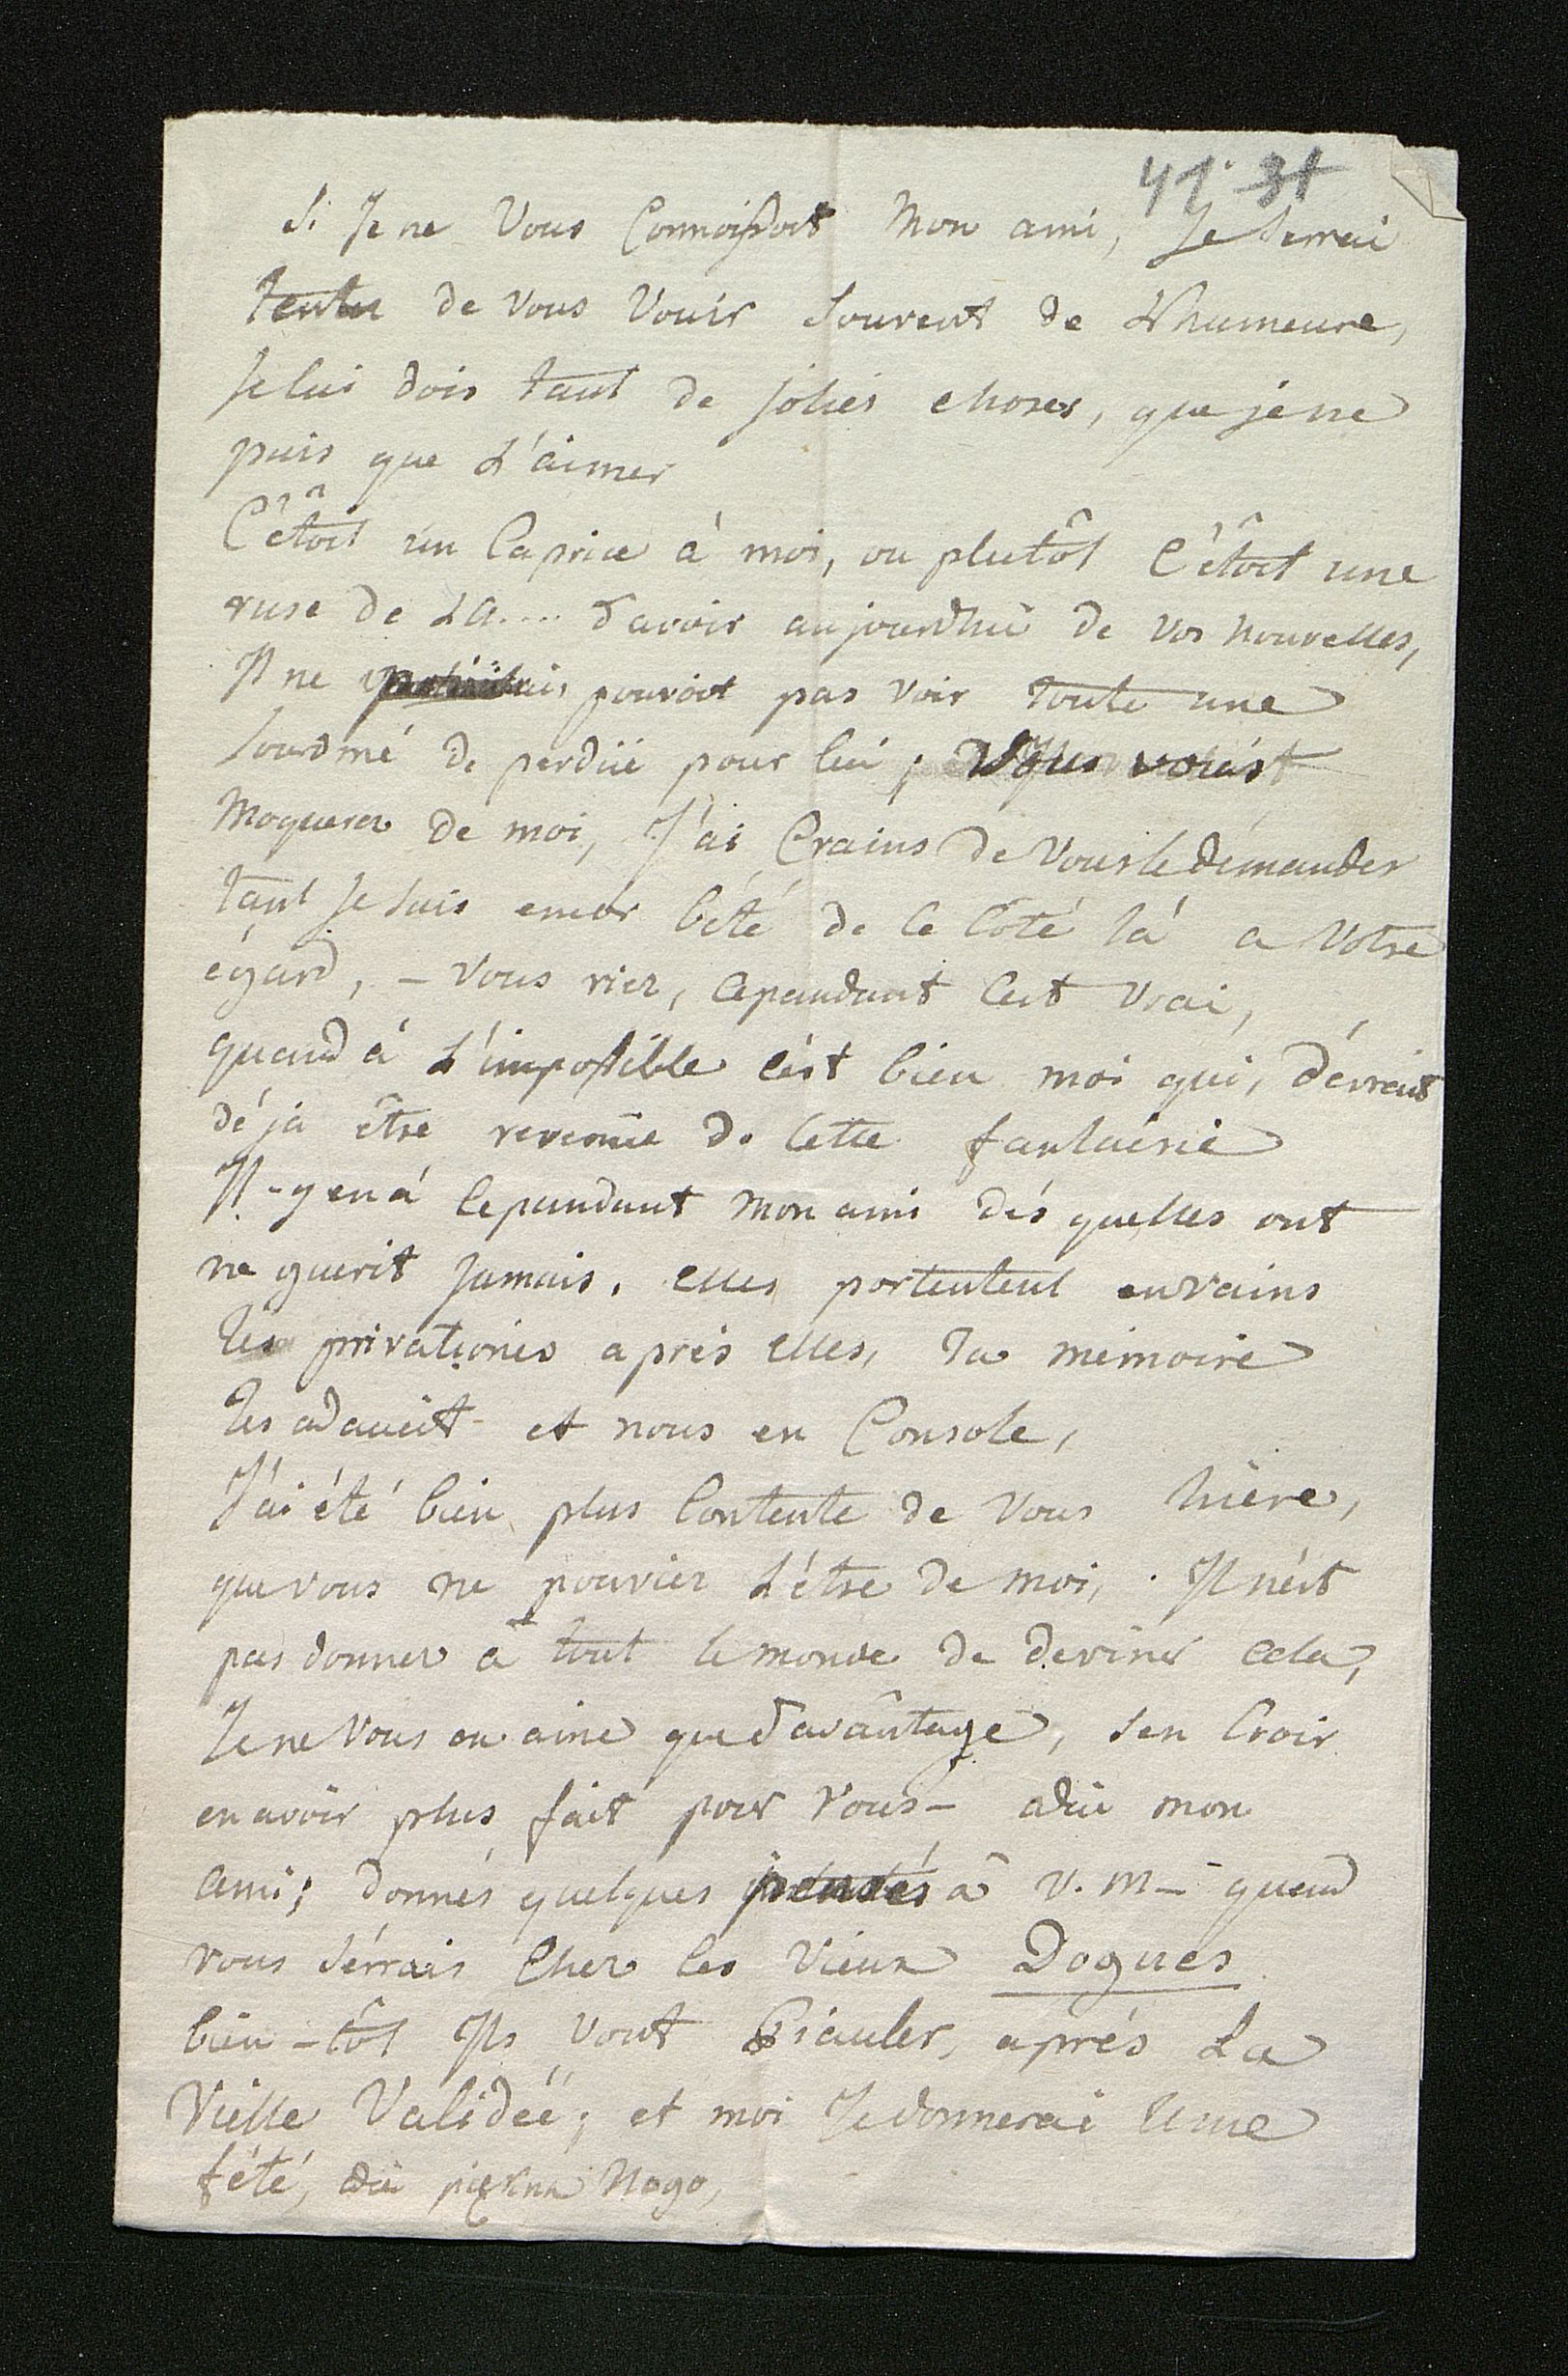 41. 31
Si Je ne Vous Connoissoit Mon ami, Je Serrai
tenter de vous Vouir Souvent de L'humeure,
Je lui dois tant de jolies choses, que je ne
puis que L'aimer
C'étoit un Caprice à moi, ou plutôt C'étoit une
ruse de LA.... d'avoir aujourdhui de vos nouvelles,
Il ne pouvoit pas voir toute une
Jourdné de perdüe pour lui; Vous
Moquerer de moi, J'ai Crains de Vous le démander
tant Je suis encor bété de Ce Coté là a Votre
égard, - Vous riez, Cepandant Cest Vrai,
quand à L'impossible cést bien moi qui, dévrait
déja être revenüe de Cette fantaisie
Il-y en á Cepandant Mon ami dés quelles ont
ne guerit Jamais. elles portentent envains
les privationes aprés elles, la mémoire
les adoucit et nous en Console,
J'ai été bien plus Contente de Vous hiere,
que vous ne pouvier L'étre de moi, . Il nést
pas donner a tout le monde de deviner cela,
Je ne Vous en aime que davântage, sen Croir
en avoir plus fait pour Vous - adiu mon
ami; donnés quelques à V. M - quend
vous Sérrais Cher les Vieux Dogues
bien-tôt Ils Vont Piauler, aprés La
Vielle Validéé; et moi Je donnerai Une
fété, adiu piekna Nogo,